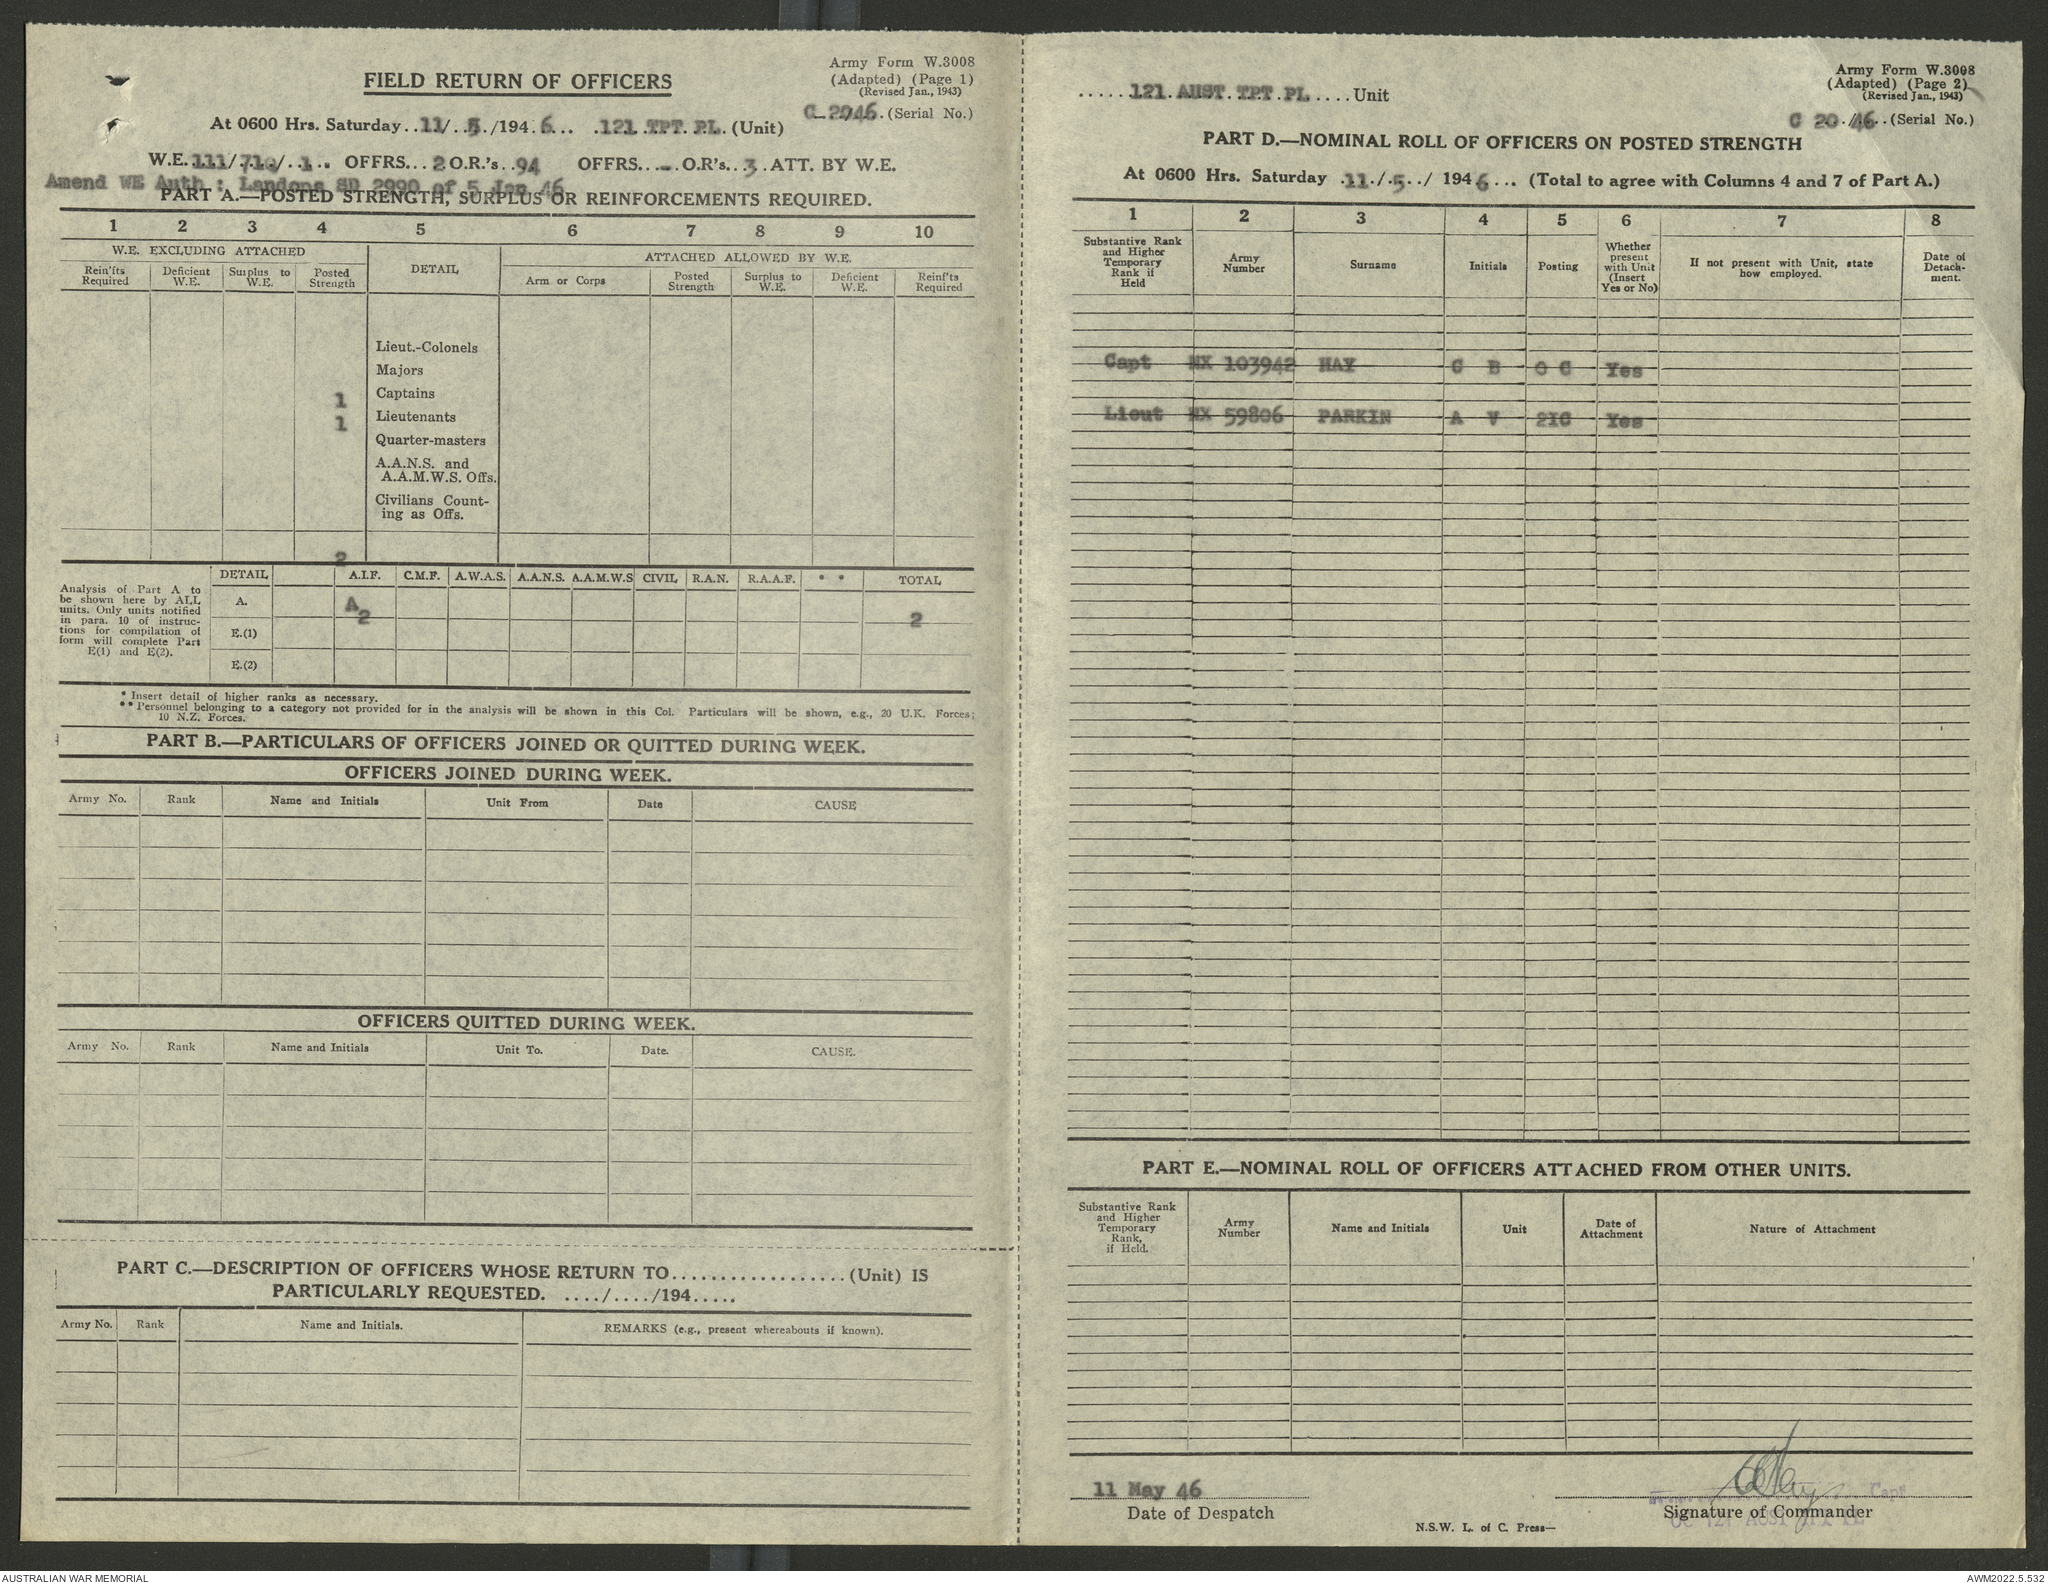 Army Form W.3008
(Adapted) (Page 1)
(Revised Jan., 1943)
FIELD RETURN OF OFFICERS
C 2046. (Serial No.)
At 0600 Hrs. Saturday..11/..5./194.6... .121.TPT.PL.(Unit)
W.E.111/710/..1... OFFRS...2 O.R.'s..94 OFFRS...-.O.R's..3.ATT. BY W.E.
Amend WE Auth: Landops SD 2990 of 5 Jan 46
PART A.—POSTED STRENGTH, SURPLUS OR REINFORCEMENTS REQUIRED.
1 2 3 4 5 6 7 8 9 10
W.E. EXCLUDING ATTACHED DETAIL ATTACHED ALLOWED BY W.E.
Rein'fts Required Deficient W.E. Surplus to W.E. Posted Strength Arm or Corps Posted Strength Surplus to W.E. Deficient W.E. Reinf'ts Required
Lieut.-Colonels
Majors
1 Captains
1 Lieutenants
Quarter-masters
A.A.N.S. and
A.A.M.W.S. Offs.
Civilians Count-
ing as Offs.
2
Analysis of Part A to
be shown here by ALL
units. Only units notified
in para. 10 of instruc-
tions for compilation of
form will complete Part
E(1) and E(2).
DETAIL A.I.F. C.M.F. A.W.A.S. A.A.N.S. A.A.M.W.S CIVIL R.A.N. R.A.A.F. * * TOTAL
A. A 2 2
E.(1)
E.(2)
* Insert detail of higher ranks as necessary.
** Personnel belonging to a category not provided for in the analysis will be shown in this Col. Particulars will be shown, e.g., 20 U.K. Forces;
10 N.Z. Forces.
PART B.—PARTICULARS OF OFFICERS JOINED OR QUITTED DURING WEEK.
OFFICERS JOINED DURING WEEK.
Army No. Rank Name and Initials Unit From Date CAUSE
OFFICERS QUITTED DURING WEEK.
Army No. Rank Name and Initials Unit To. Date. CAUSE.
PART C.—DESCRIPTION OF OFFICERS WHOSE RETURN TO..................(Unit) IS
PARTICULARLY REQUESTED. ..../..../194.....
Army No. Rank Name and Initials. REMARKS (e.g., present whereabouts if known).
Army Form W.3008
(Adapted) (Page 2)
(Revised Jan., 1943)
.....121.AUST.TPT.PL....Unit
C 20./46..(Serial No.)
PART D.—NOMINAL ROLL OF OFFICERS ON POSTED STRENGTH
At 0600 Hrs. Saturday .11./.5../ 1946... (Total to agree with Columns 4 and 7 of Part A.)
1 2 3 4 5 6 7 8
Substantive Rank and Higher Temporary Rank if Held Army Number Surname Initials Posting Whether present with Unit (Insert Yes or No) If not present with Unit, state how employed. Date of Detach- ment.
Capt NX 103942 HAY C B O C Yes
Lieut NX 59806 PARKIN A V 2IC Yes
PART E.—NOMINAL ROLL OF OFFICERS ATTACHED FROM OTHER UNITS.
Substantive Rank and Higher Temporary Rank, if Held. Army Number Name and Initials Unit Date of Attachment Nature of Attachment
11 May 46
Date of Despatch
Capt
Signature of Commander
N.S.W. L. of C. Press—
AUSTRALIAN WAR MEMORIAL
AWM2022.5.532